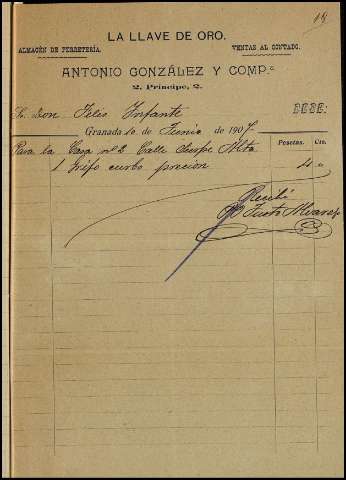 19
LA LLAVE DE ORO.
ALMACÉN DE FERRETERÍA. VENTAS AL CONTADO.
ANTONIO GONZÁLEZ Y COMP.ª
2, Príncipe, 2.
Sr. Don Felix Infante DEBE:
Granada 10 de Junio de 1907.
Pesetas. Cts.
Para la Casa nº 2 Calle Alta
1 Grifo curbo precion 4
Recibí
Justo Alvarez